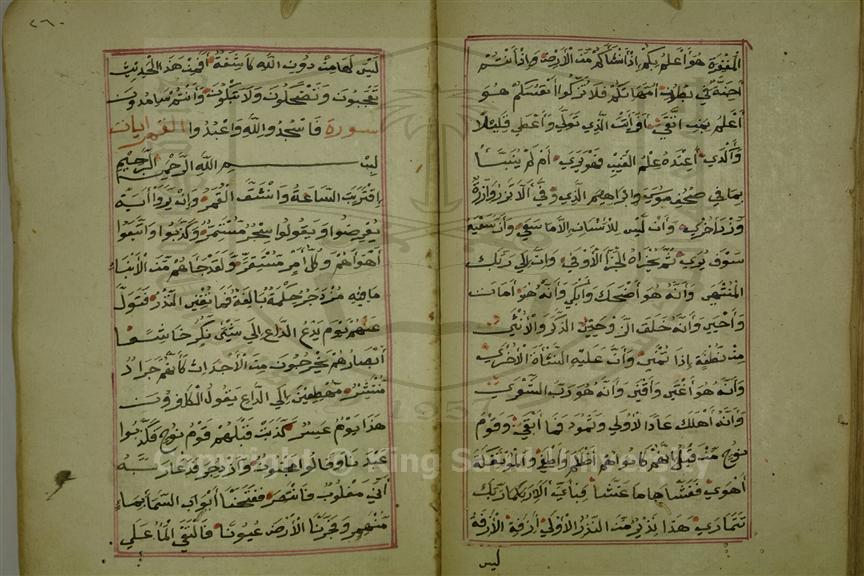 المغفرة هو أعلم بكم إذ أنشأكم من الأرض وإذ أنتم
أجنة في بطون أمهاتكم فلا تزكوا أنفسكم هو
أعلم بمن اتقى أفرأيت الذي تولى وأعطى قليلا
وأكدى أعنده علم الغيب فهو يرى أم لم ينبأ
بما في صحف موسى وإبراهيم الذي وفى ألا تزر وازرة
وزر أخرى وأن ليس للإنسان إلا ما سعى وأن سعيه
سوف يرى ثم يجزاه الجزاء الأوفى وأن إلى ربك
المنتهى وأنه هو أضحك وأبكى وأنه هو أمات
وأحيى وأنه خلق الزوجين الذكر والأنثى
من نطفة إذا تمنى وأن عليه النشأة الأخرى
وأنه هو أغنى وأقنى وأنه هو رب الشعرى
وأنه أهلك عادا الأولى وثمود فما أبقى وقوم
نوح من قبل إنهم كانوا هم أظلم وأطغى والمؤتفكة
أهوى فغشاها ما غشى فبأي آلاء ربك
تتمارى هذا نذير من النذر الأولى أزفت الآزفة
ليس
٢٦٠
ليس لها من دون الله كاشفة أفمن هذا الحديث
تعجبون وتضحكون ولا تبكون وأنتم سامدون
سورة فاسجدوا لله واعبدوا القمر ايات
بسم الله الرحمن الرحيم
اقتربت الساعة وانشق القمر وإن يروا آية
يعرضوا ويقولوا سحر مستمر وكذبوا واتبعوا
أهواءهم وكل أمر مستقر ولقد جاءهم من الأنباء
ما فيه مزدجر حكمة بالغة فما تغن النذر فتول
عنهم يوم يدع الداع إلى شيء نكر خاشعا
أبصارهم يخرجون من الأجداث كأنهم جراد
منتشر مهطعين إلى الداع يقول الكافرون
هذا يوم عسر كذبت قبلهم قوم نوح فكذبوا
عبدنا وقالوا مجنون وازدجر فدعا ربه
أني مغلوب فانتصر ففتحنا أبواب السماء بماء
منهمر وفجرنا الأرض عيونا فالتقى الماء على
1957
Copyright © King Saud University